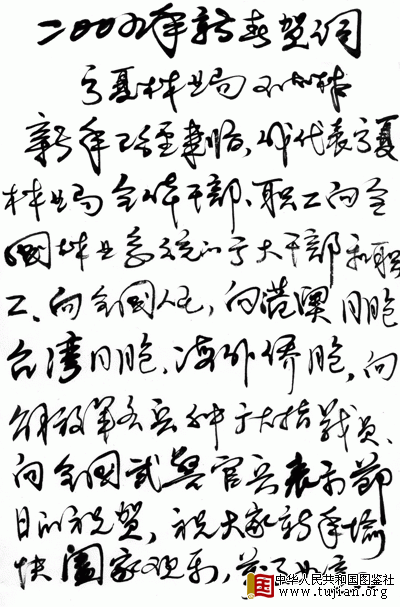 二00九年新春贺词
宁夏林业局
新年已经来临，我代表宁夏
林业局全体干部、职工向全
国林业系统的广大干部和职
工、向全国人民，向港澳同胞
台湾同胞、海外侨胞，向
解放军各兵种广大指战员、
向全国武警官兵表示节
日的祝贺，祝大家新年愉
快阖家欢乐，万事如意
中华人民共和国图鉴社
www.tujian.org